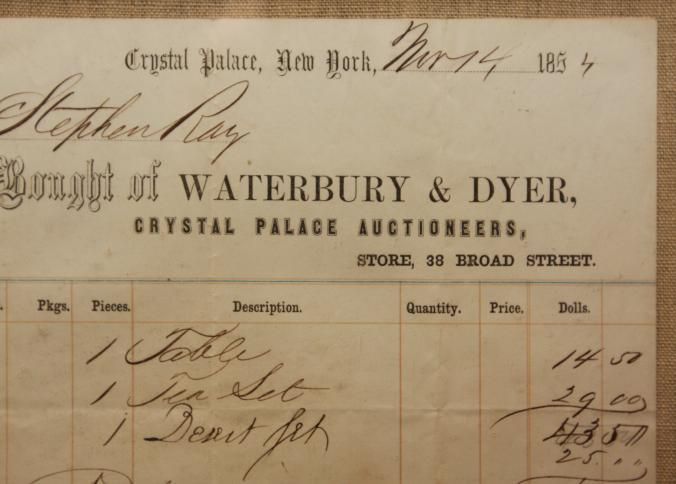 Crystal Palace, New York, Nov 14 1854
Stephen Ray
Bought of WATERBURY & DYER,
CRYSTAL PALACE AUCTIONEERS,
STORE, 38 BROAD STREET.
Pkgs. Pieces. Description. Quantity. Price. Dolls.
1 Table 14 50
1 Tea Set 29 00
1 Desert Set 43 50
25 " "